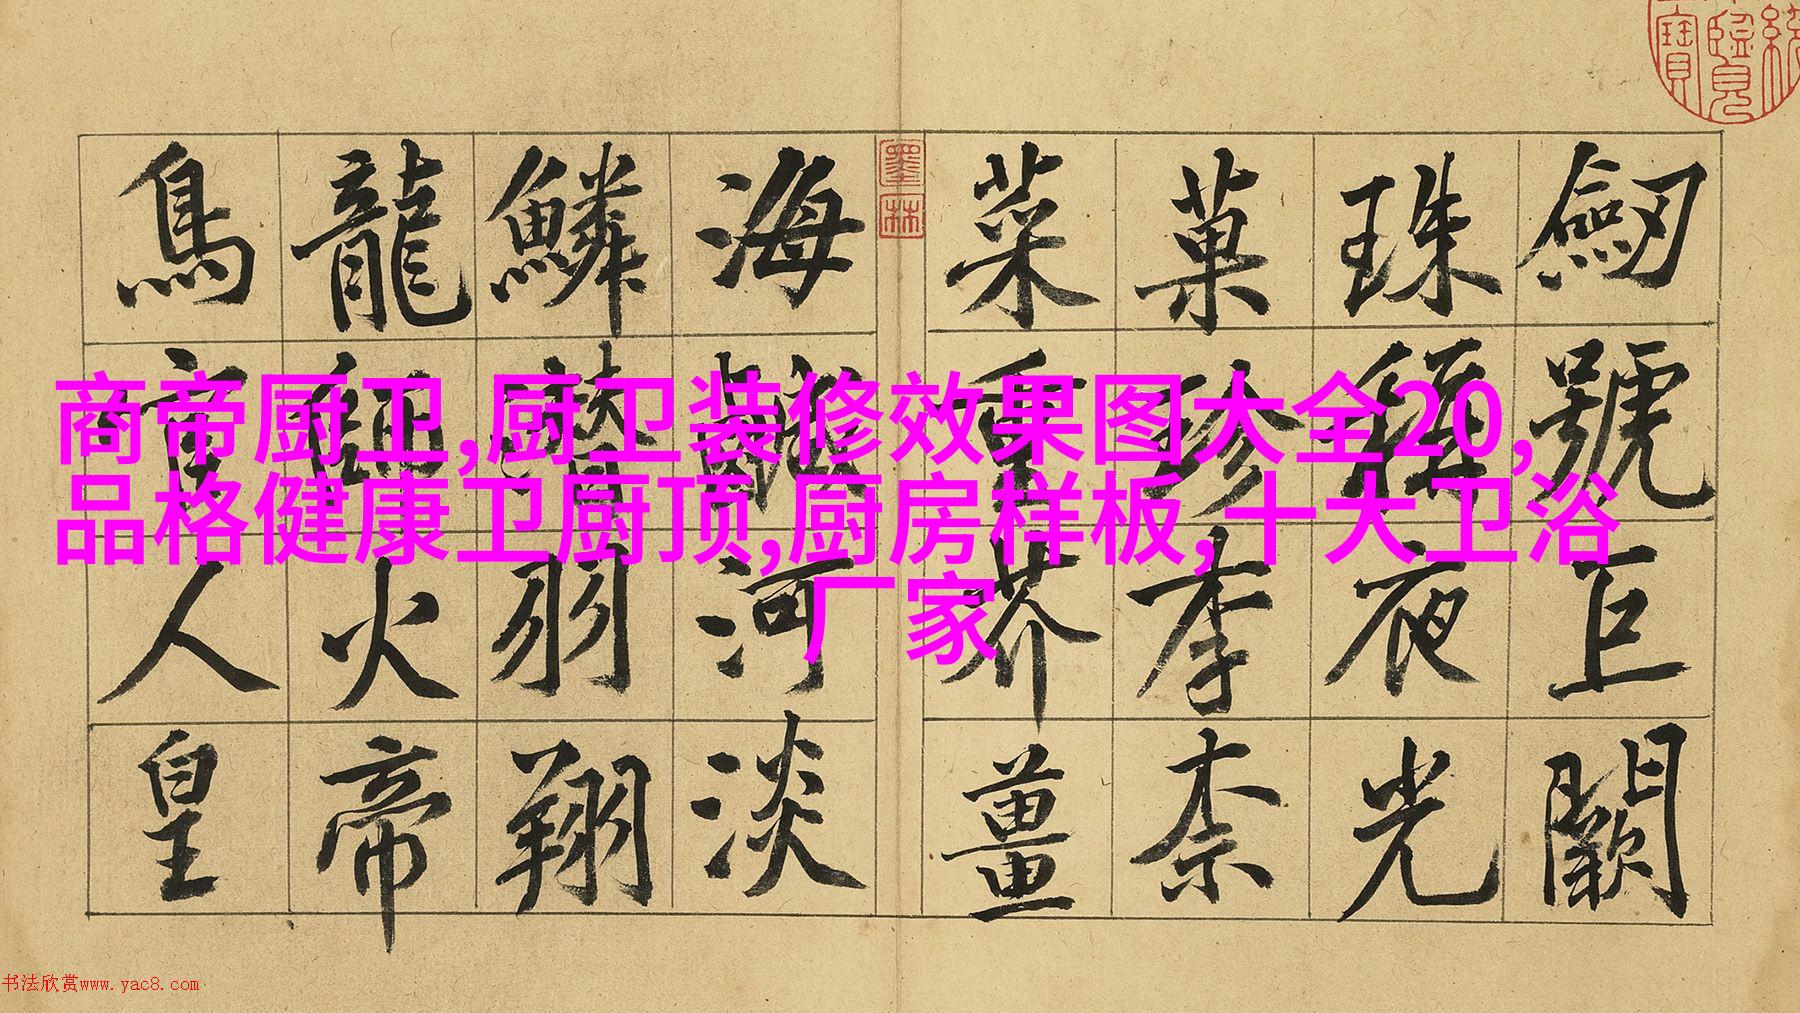 商帝厨卫,厨卫装修效果图大全20,
品格健康卫厨顶,厨房样板,十大卫浴
厂家
劒號巨闕
珠稱夜光
菓珍李柰
菜重芥薑
海醎河淡
鱗潜羽翔
龍師火帝
鳥官人皇
墨林
书法欣赏www.yac8.com